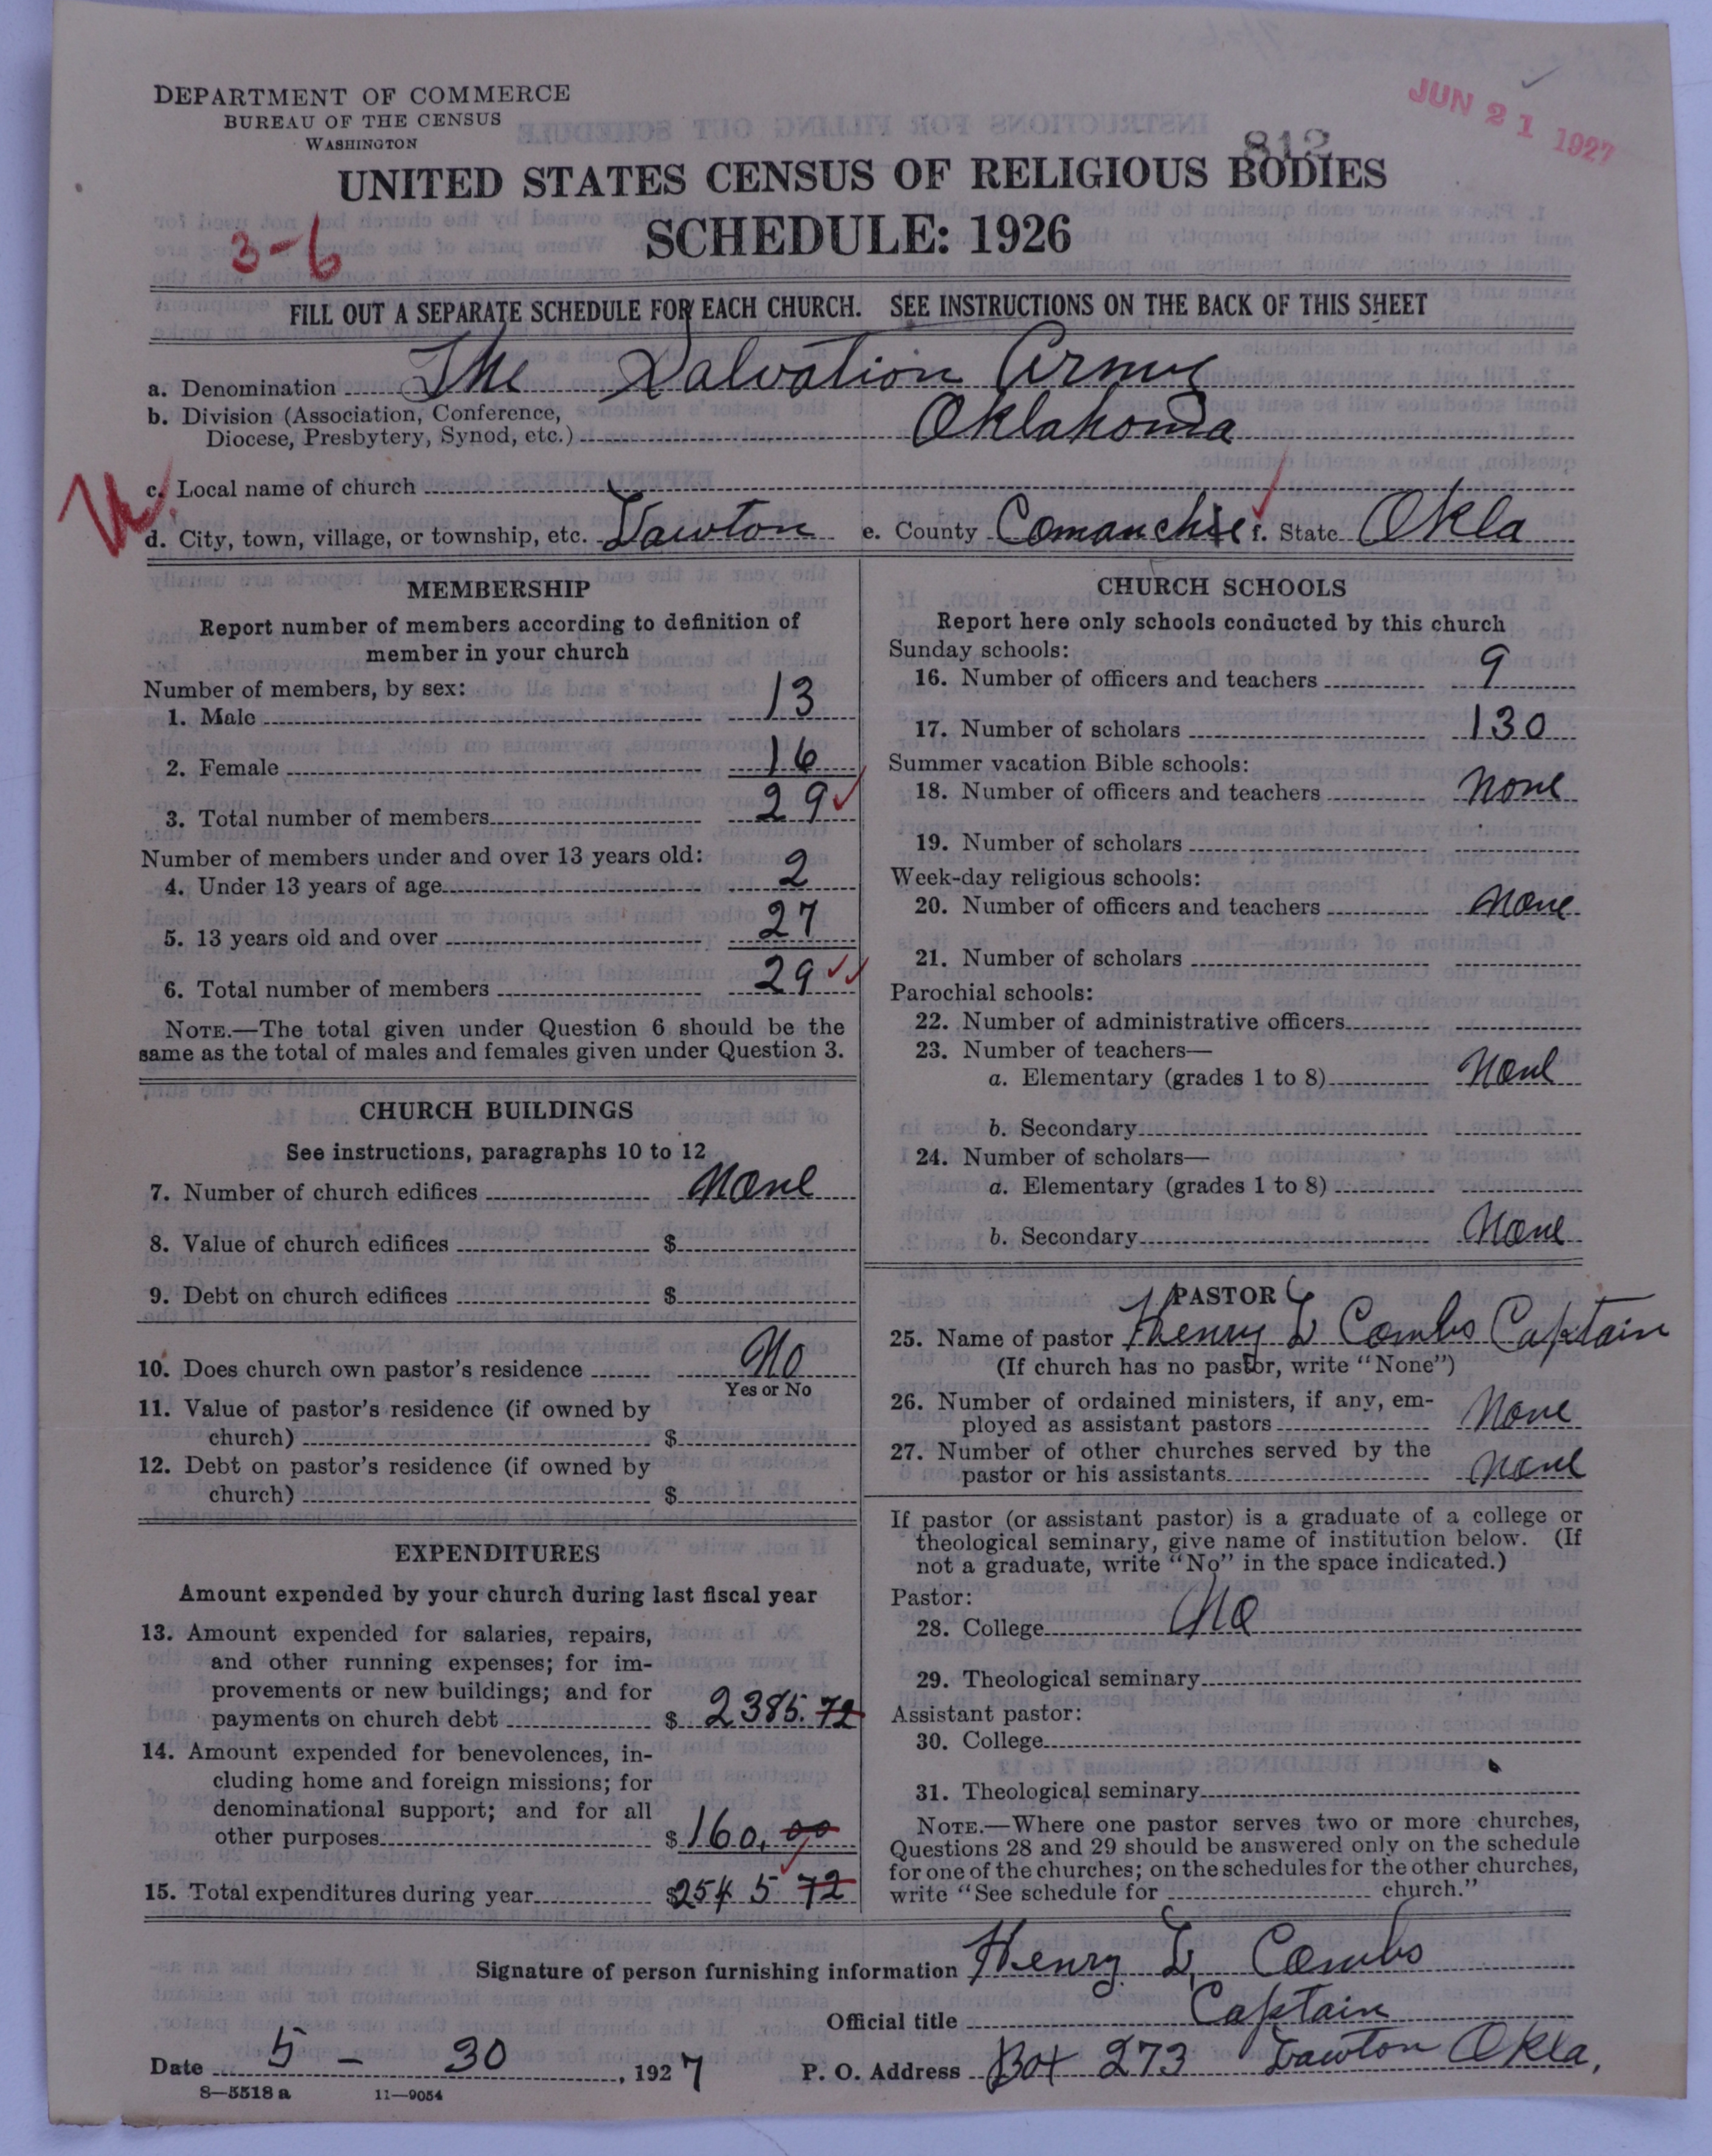 DEPARTMENT OF COMMERCE
BUREAU OF THE CENSUS
WASHINGTON
JUN 21 1927
812
UNITED STATES CENSUS OF RELIGIOUS BODIES
SCHEDULE: 1926
3-6
FILL OUT A SEPARATE SCHEDULE FOR EACH CHURCH. SEE INSTRUCTIONS ON THE BACK OF THIS SHEET
a. Denomination The Salvation Army
b. Division (Association, Conference,
Diocese, Presbytery, Synod, etc.) Oklahoma
c. Local name of church
d. City, town, village, or township, etc. Lawton e. County Comanche f. State Okla
MEMBERSHIP
Report number of members according to definition of
member in your church
Number of members, by sex:
1. Male 13
2. Female 16
3. Total number of members 29
Number of members under and over 13 years old:
4. Under 13 years of age 2
5. 13 years old and over 27
6. Total number of members 29
NOTE.—The total given under Question 6 should be the
same as the total of males and females given under Question 3.
CHURCH BUILDINGS
See instructions, paragraphs 10 to 12
7. Number of church edifices None
8. Value of church edifices $
9. Debt on church edifices $
10. Does church own pastor's residence No
Yes or No
11. Value of pastor's residence (if owned by
church) $
12. Debt on pastor's residence (if owned by
church) $
EXPENDITURES
Amount expended by your church during last fiscal year
13. Amount expended for salaries, repairs,
and other running expenses; for im-
provements or new buildings; and for
payments on church debt $ 2385.72
14. Amount expended for benevolences, in-
cluding home and foreign missions; for
denominational support; and for all
other purposes $ 160.00
15. Total expenditures during year $2545 72
CHURCH SCHOOLS
Report here only schools conducted by this church
Sunday schools:
16. Number of officers and teachers 9
17. Number of scholars 130
Summer vacation Bible schools:
18. Number of officers and teachers None
19. Number of scholars
Week-day religious schools:
20. Number of officers and teachers None
21. Number of scholars
Parochial schools:
22. Number of administrative officers
23. Number of teachers—
a. Elementary (grades 1 to 8) None
b. Secondary
24. Number of scholars—
a. Elementary (grades 1 to 8)
b. Secondary None
PASTOR
25. Name of pastor Henry L Combs Captain
(If church has no pastor, write "None")
26. Number of ordained ministers, if any, em-
ployed as assistant pastors None
27. Number of other churches served by the
pastor or his assistants None
If pastor (or assistant pastor) is a graduate of a college or
theological seminary, give name of institution below. (If
not a graduate, write "No" in the space indicated.)
Pastor:
28. College No
29. Theological seminary
Assistant pastor:
30. College
31. Theological seminary
NOTE.—Where one pastor serves two or more churches,
Questions 28 and 29 should be answered only on the schedule
for one of the churches; on the schedules for the other churches,
write "See schedule for church."
Signature of person furnishing information Henry L. Combs
Official title Captain
Date 5 - 30, 1927 P. O. Address Box 273 Lawton Okla.
8-5518 a 11-9054